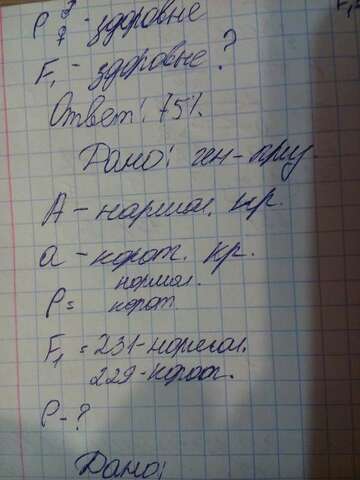 P - здоровые
F₁ - здоровые?
Ответ: 75%.
Дано: ген-приз.
A - нормал. кр.
a - корот. кр.
P = нормал.
корот.
F₁ = 231 - нормал.
229 - корот.
P - ?
Дано: